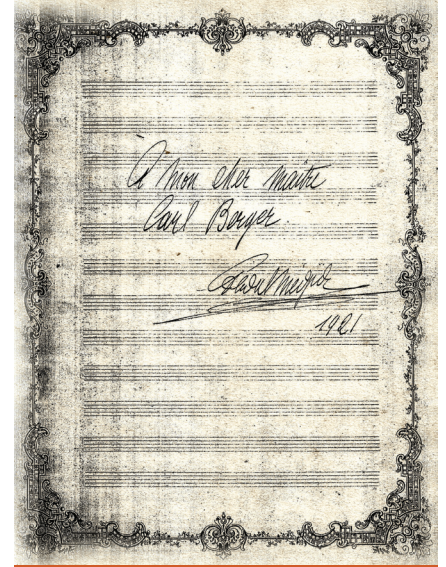 À mon cher maître
Carl Boyer.
1921